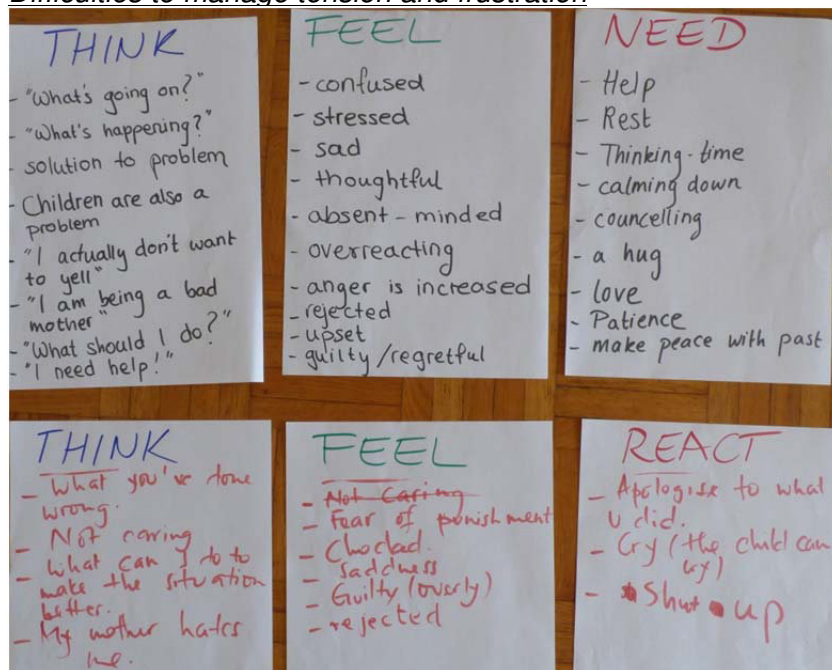 Difficulties to manage tension and frustration
THINK
- "What's going on?"
- "What's happening?"
- solution to problem
- Children are also a
problem
- "I actually don't want
to yell"
- "I am being a bad
mother"
- "What should I do?"
- "I need help!"
FEEL
- confused
- stressed
- sad
- thoughtful
- absent-minded
- overreacting
- anger is increased
- rejected
- upset
- guilty/regretful
NEED
- Help
- Rest
- Thinking-time
- calming down
- councelling
- a hug
- love
- Patience
- make peace with past
THINK
- What you've done
wrong.
- Not caring
- What can I do to
make the situation
better.
- My mother hates
me.
FEEL
- Not Caring
- Fear of ponishment
- Chockad.
- saddness
- Guilty (overly)
- rejected
REACT
- Apologise to what
u did.
- Cry (the child can
cry)
- Shut up